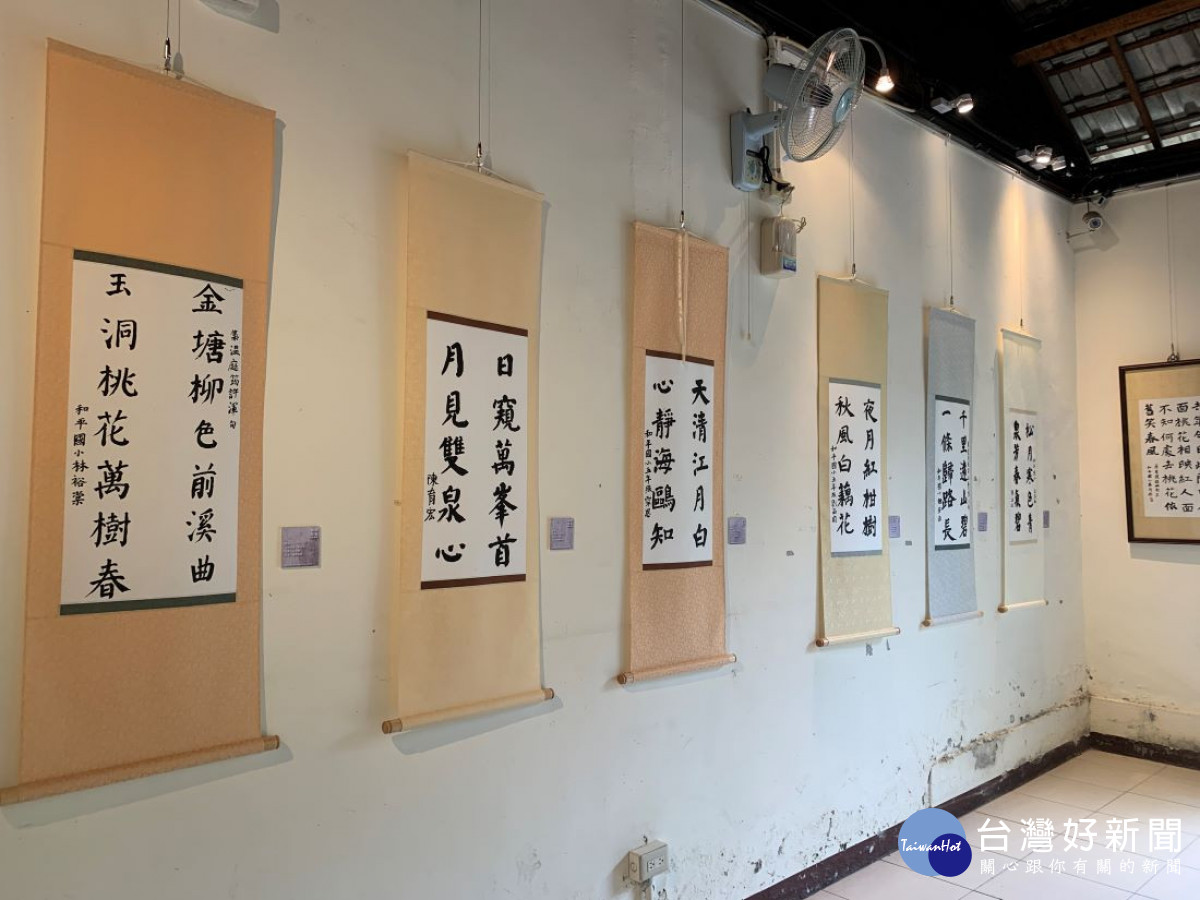 金塘柳色前溪曲
集溫庭筠許渾句
玉洞桃花萬樹春
和平國小林裕棠
日窺萬峯首
月見雙泉心
陳宥宏
天清江月白
心靜海鷗知
夜月紅柑樹
秋風白藕花
千里遠山碧
一條歸路長
松月寒色青
泉芳春氣碧
面桃花相映紅人面
不知何處去桃花依
舊笑春風
TaiwanHot
台灣好新聞
關心跟你有關的新聞